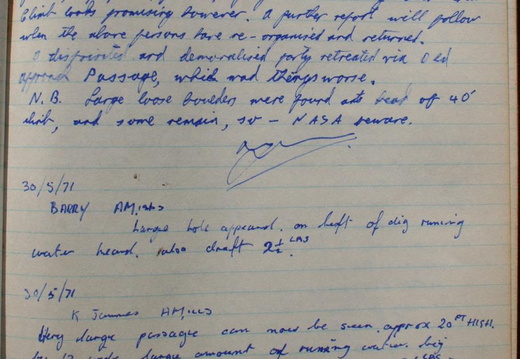 Climb looks promising however. A further report will follow
when the above persons have re-organised and returned.
A disjointed and demoralised party retreated via Old
approach Passage, which made things worse.
N.B. Large loose boulders were found at head of 40'
climb, and some remain, so - NASA beware.
30/5/71
BARRY AM,
Large hole appeared. on left of dig running
water heard. also draft 2½ LBS.
30/5/71
K James AM,
Very large passage can now be seen. approx 20 FT HIGH.
large amount of running water. big